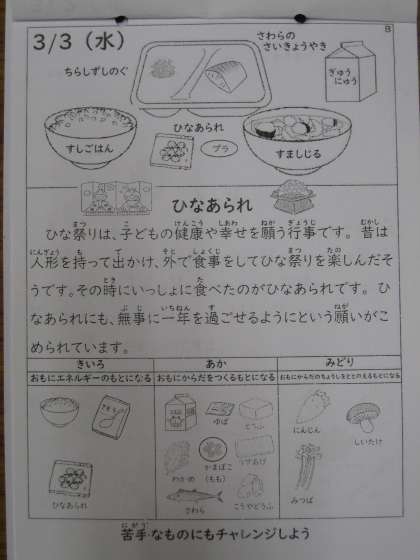 3/3（水）
B
さわらの
さいきょうやき
ちらしずしのぐ
ぎゅう
にゅう
ひなあられ
すしごはん
プラ
すましじる
ひなあられ
ひな祭りは、子どもの健康や幸せを願う行事です。昔は
人形を持って出かけ、外で食事をしてひな祭りを楽しんだそ
うです。その時にいっしょに食べたのがひなあられです。ひ
なあられにも、無事に一年を過ごせるようにという願いがこ
められています。
きいろ
あか
みどり
おもにエネルギーのもとになる
おもにからだをつくるもとになる
おもにからだのちょうしをととのえるもとになる
ゆば
とうふ
にんじん
しいたけ
わかめ
かまぼこ
（もも）
うすあげ
ひなあられ
さわら
こうやどうふ
みつば
苦手なものにもチャレンジしよう